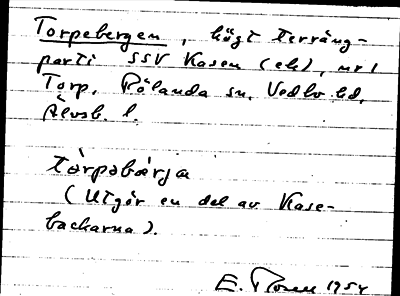 Torpebergen, högt terräng-
parti SSV Kasen (ek), nr 1
Torp, Rölanda sn, Vedbo hd,
Älvsb. l.
tòrpəbàrja
(Utgör en del av Kase-
backarna).
E. Rosell 1954